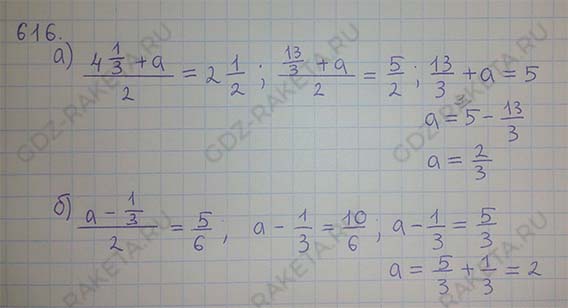 616.
а) (4 1/3 + a)/2 = 2 1/2; (13/3 + a)/2 = 5/2; 13/3 + a = 5
a = 5 - 13/3
a = 2/3
б) (a - 1/3)/2 = 5/6, a - 1/3 = 10/6; a - 1/3 = 5/3
a = 5/3 + 1/3 = 2
GDZ-RAKETA.RU
GDZ-RAKETA.RU
GDZ-RAKETA.RU
GDZ-RAKETA.RU